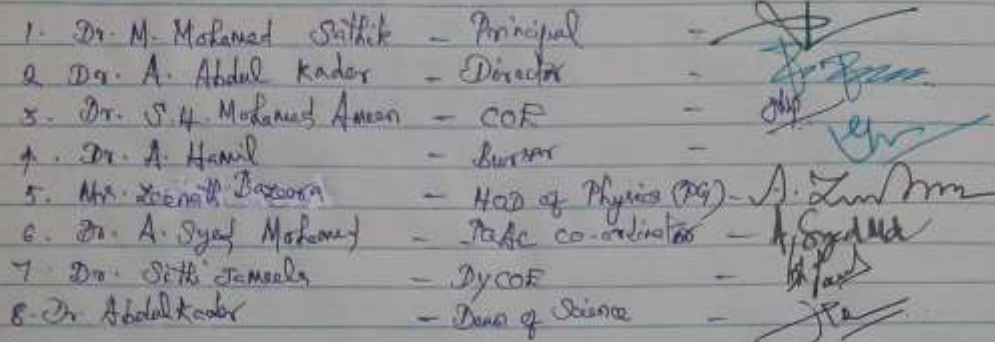 1. Dr. M. Mohamed Sathik - Principal -
2 Dr. A. Abdul Kader - Director -
3. Dr. S.H. Mohamed Ameen - COE -
4. Dr. A. Hamil - Bursar -
5. Mr. Zeenath Bazeera - HOD of Physics (PG) -
6. Dr. A. Syed Mohamed - co-ordinator - A, Syed Md
7 Dr. Sithi Jameela - DyCOE -
8. Dr Abdul Kader - Dean of Science -